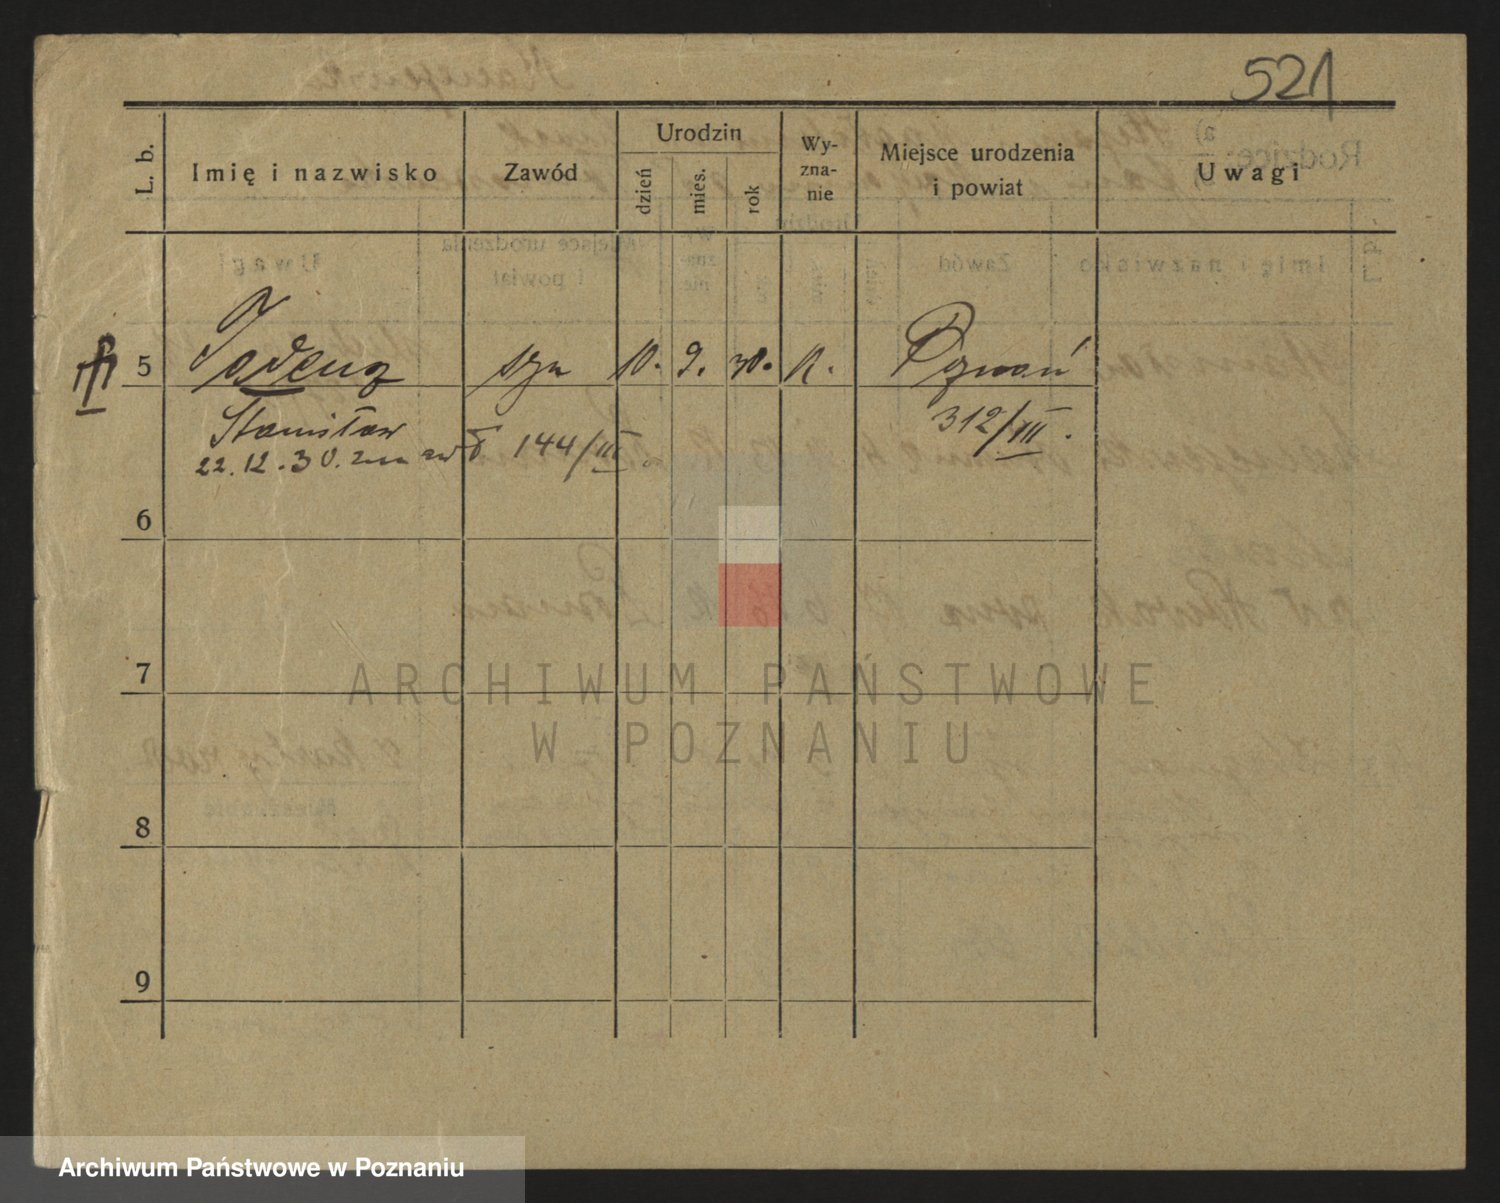 521
L. b.
Imię i nazwisko
Zawód
Urodzin
dzień
mies.
rok
Wy-
zna-
nie
Miejsce urodzenia
i powiat
Uwagi
5 Tadeusz syn 10. 9. 30. k. Poznań
Stanisław 312/III.
22.12.30. 144/III
6
7
ARCHIWUM PAŃSTWOWE
W POZNANIU
8
9
Archiwum Państwowe w Poznaniu